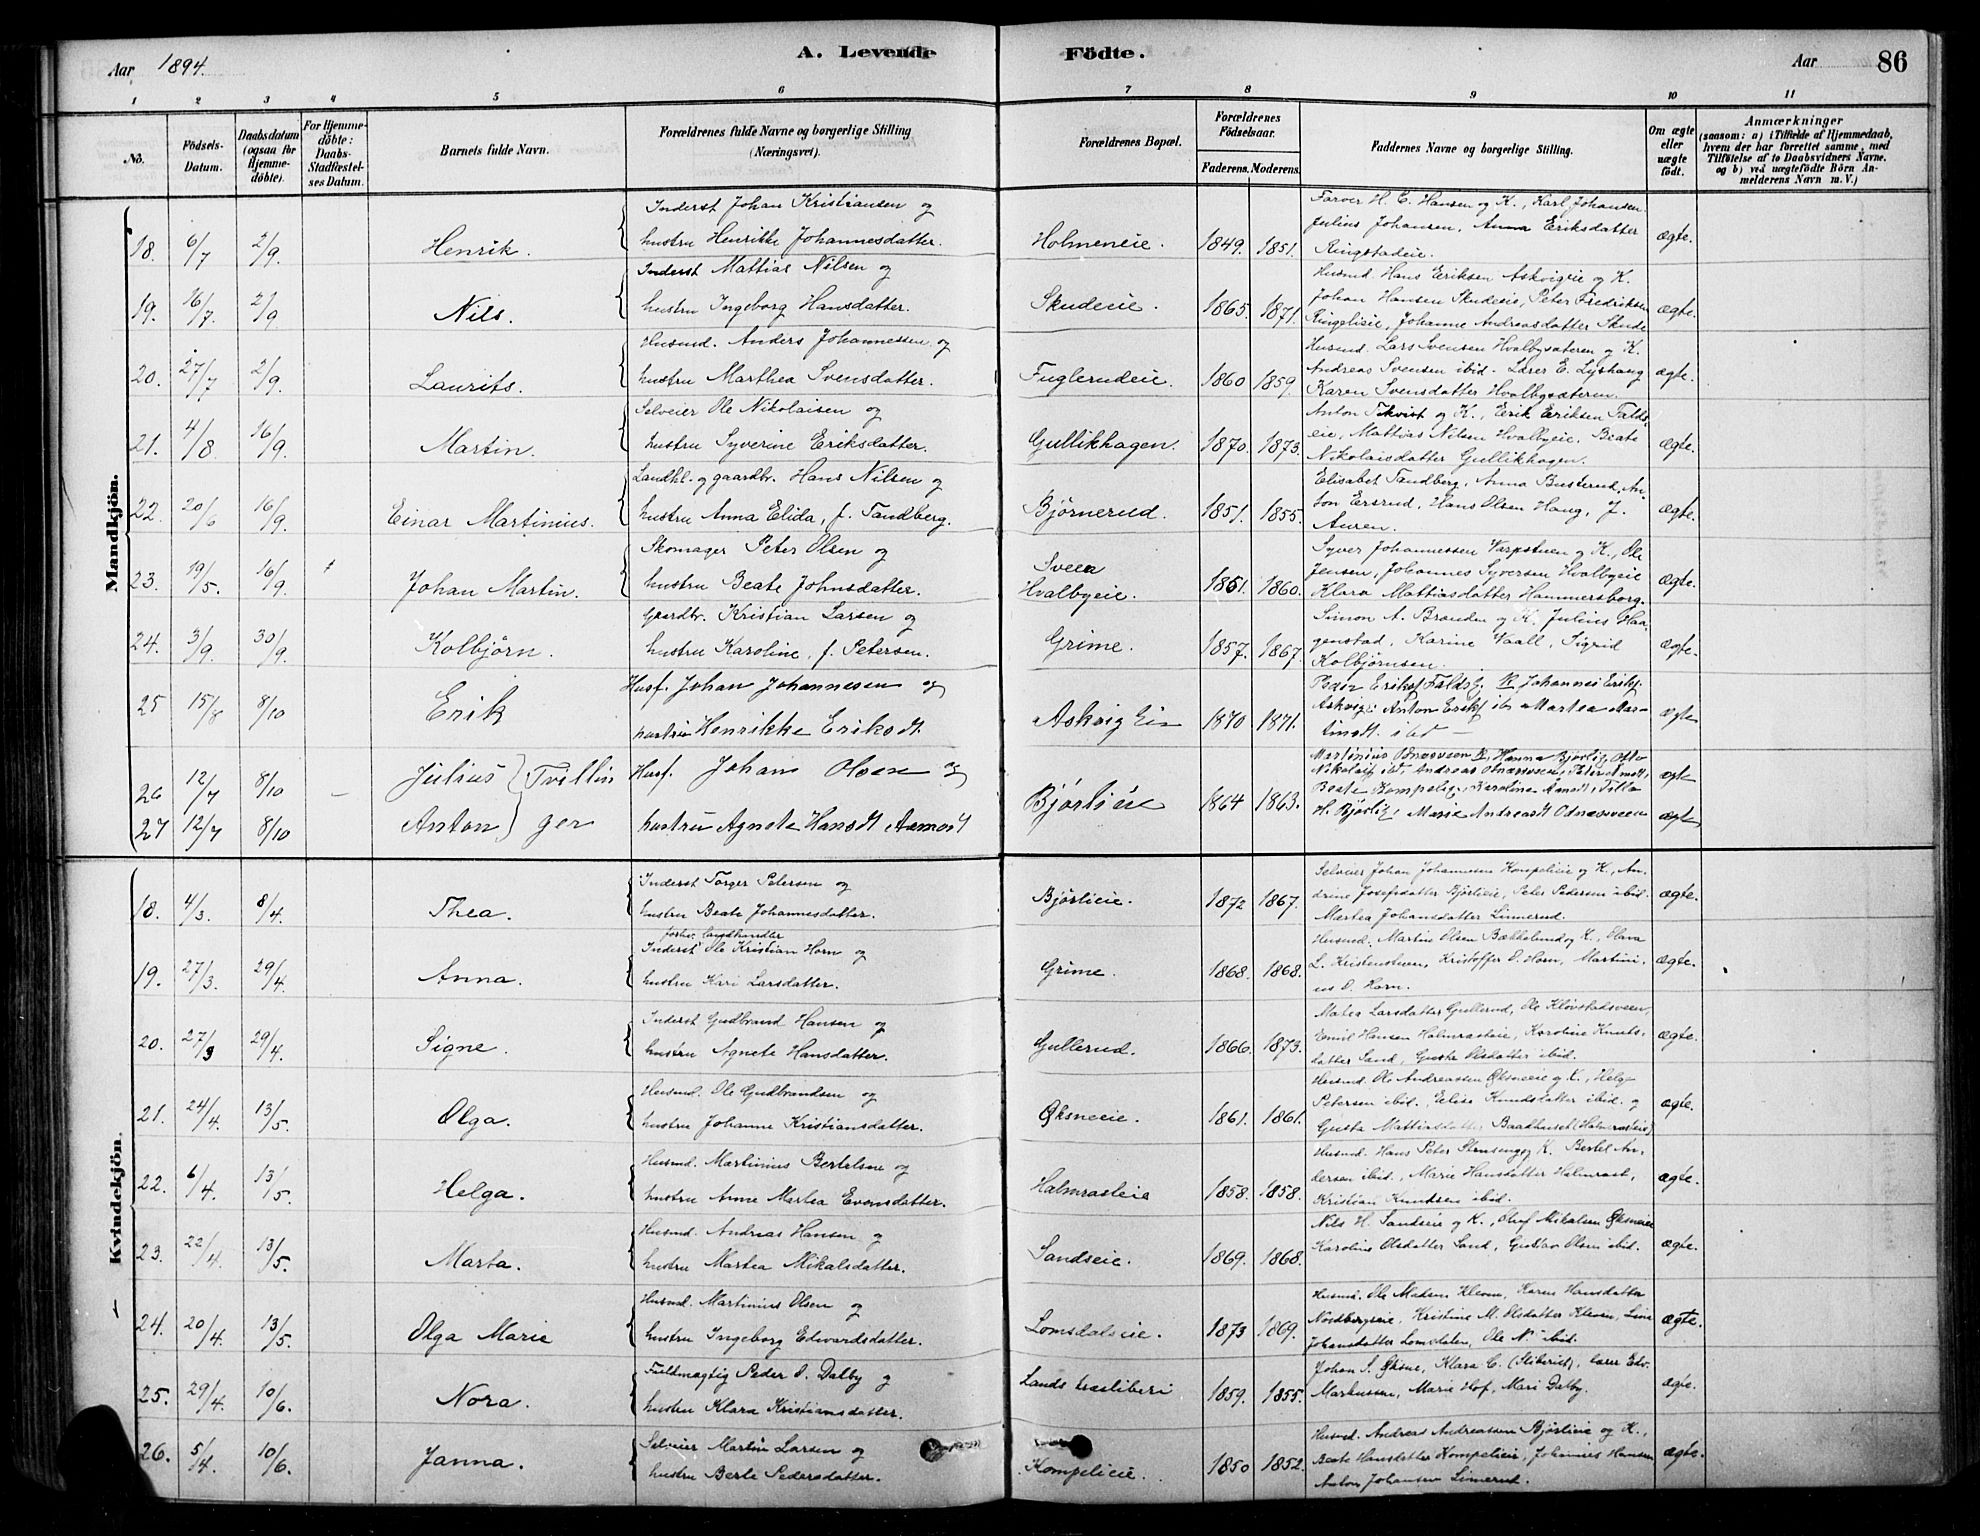 Aar 1894.
A. Levende Födte.
Aar 86
1 2 3 4 5 6 7 8 9 10 11
No.
Födsels-Datum.
Daabsdatum (ogsaa for Hjemmedöbte).
For Hjemmedöbte: Daabs-Stadfæstelses Datum.
Barnets fulde Navn.
Forældrenes fulde Navne og borgerlige Stilling (Næringsvei).
Forældrenes Bopæl.
Forældrenes Födselsaar.
Faderens. Moderens.
Faddernes Navne og borgerlige Stilling.
Om ægte eller uægte födt.
Anmærkninger
(saasom: a) i Tilfælde af Hjemmedaab, hvem der har forrettet samme, med Tilföielse af to Daabsvidners Navne. og b) ved uægtefödte Börn Anmelderens Navn m. V.)
Mandkjön.
Inderst Johan Kristiansen og
Farver H. E. Hansen og K., Karl Johansen
18. 6/7 2/9. Henrik. hustru Henrikke Johannesdatter. Holmeneie. 1849. 1851. Julius Johansen, Anna Eriksdatter ægte.
Ringstadeie.
Inderst Mattias Nilsen og
Husmd. Hans Eriksen Askvigeie og K.
19. 16/7. 2/9 Nils. hustru Ingeborg Hansdatter. Skudeie. 1865. 1871. Johan Hansen Skudeie, Peter Fredriksen ægte.
Ringelieie, Johanne Andreasdatter Skude
Husmd. Anders Johannessen og
Husmd. Lars Svensen Hvalbysæteren og K.
20. 27/7 2/9. Laurits. hustru Marthea Svensdatter. Fuglerudeie. 1860 1859. Andreas Svensen ibid. Lærer E. Lyshaug ægte.
Karen Svensdatter Hvalbysæteren.
Selveier Ole Nikolaisen og
Anton Tekvist og K., Erik Eriksen Falds-
21. 4/8 16/9. Martin. hustru Syverine Eriksdatter. Gullikhagen. 1870. 1873. eie, Mattias Nilsen Hvalbyeie. Beate ægte.
Nikolaisdatter Gullikhagen.
Landhl. og gaardbr. Hans Nilsen og
Elisabet Tandberg, Anna Busterud, An-
22. 20/6 16/9. Einar Martinius. hustru Anna Elida, f. Tandberg. Bjørnerud. 1851. 1855. ton Ersrud, Hans Olsen Haug, J. ægte.
Auren.
Skomager Peter Olsen og
Sveen
Syver Johannessen Varpstuen og K., Ole
23. 19/5. 16/9. Johan Martin. hustru Beate Johnsdatter. Hvalbyeie. 1861. 1860. Jensen, Johannes Syversen Hvalbyeie ægte.
Klara Mattiasdatter Hammersborg.
Gaardbr. Kristian Larsen og
Simon A. Brænden og K. Julius Haa-
24. 3/9. 30/9. Kolbjörn. hustru Karoline, f. Petersen. Grime. 1857. 1867. genstad, Karine Vaall, Sigrid ægte.
Kolbjørnsen.
Husf. Johan Johannesen og
25 15/8 8/10 Erik hustru Henrikke Eriksdt. Askvig Eie 1870 1871. Askvigei Anton Eriks ibd Martea Mar- ægte
tinsdt. ibd —
26 12/7 8/10 — Julius } Tvillin Husf. Johan Olsen og Bjørlieie 1864 1863. ægte
27 12/7 8/10 Anton } ger hustru Agnete Hansdt Aamodt H. Bjørlig, Marie Andreasdt Odnæsveen ægte
Kvindekjön.
Inderst Torger Petersen og
Selveier Johan Johannesen Kompelieie og K., An-
18. 4/3. 8/4. Thea. hustru Beate Johannesdatter. Bjørlieie. 1872 1867. drine Josefsdatter Bjørlieie, Peter Pedersen ibid. ægte.
Martea Johansdatter Linnerud.
forhv. landhandler
Inderst Ole Kristian Horn og
Husmd. Martin Olsen Bækkelund og K., Olava
19. 27/3. 29/4. Anna. hustru Kari Larsdatter. Grime. 1868. 1868. L. Kristenstuen, Kristoffer O. Horn, Martini- ægte.
us O. Horn.
Inderst Gudbrand Hansen og
Matea Larsdatter Gullerud, Ole Kløvstadsveen,
20. 27/3 29/4. Signe. hustru Agnete Hansdatter. Gullerud. 1866. 1873. Emil Hansen Halmrasteie, Karoline Knuts- ægte.
datter Sand, Gusta Olsdatter ibid.
Husmd. Ole Gudbrandsen og
Husmd. Ole Andreassen Øksneeie og K., Helge
21. 24/4. 13/5. Olga. hustru Johanne Kristiansdatter. Øksneeie. 1861. 1861. Petersen ibid., Eelise Knudsdatter ibid. og ægte.
Gusta Mattiasdatter Baadhuset (Halmrasteie)
Husmd. Martinius Bertelsen og
Husmd. Hans Peter Stenseng og K. Bertel An-
22. 6/4. 13/5. Helga. hustru Anne Martea Evensdatter. Halmrasteie 1858. 1858. dersen ibid., Marie Hansdatter Halmrast, ægte.
Kristian Knutsen ibid.
Husmd. Andreas Hansen og
Nils H. Sandseie og K., Oluf Mikalsen Øksneeie
23. 22/4. 13/5. Marta. hustru Martea Mikalsdatter. Sandseie. 1869. 1868. Karoline Olsdatter Sand, Gustav Olsen ibid. ægte.
Husmd. Martinius Olsen og
Husmd. Ole Madsen Kleven, Karen Hansdatter
24. 20/4. 13/5. Olga Marie hustru Ingeborg Edvardsdatter. Lomsdalseie. 1873 1869. Nordbergseie, Kristine M. Olsdatter Kleven, Lina ægte.
Johansdatter Lomsdalen, Ole N. ibid.
Fuldmægtig Peder O. Dalby og
Johan S. Øksne, Klara C. (Sliberiet), lærer Edv.
25. 29/4. 10/6. Nora. hustru Klara Kristiansdatter. Lands træsliberi 1859. 1855. Markussen, Marie Hof, Mari Dalby. ægte.
Selveier Martin Larsen og
Husmd. Andreas Andreassen Bjørlieie og K.,
26. 5/4. 10/6. Janna. hustru Berte Pedersdatter. Kompelieie. 1850 1852. Beate Hansdatter Kompelieie, Johannes Hansen ægte.
Anton Johansen Linnerud.